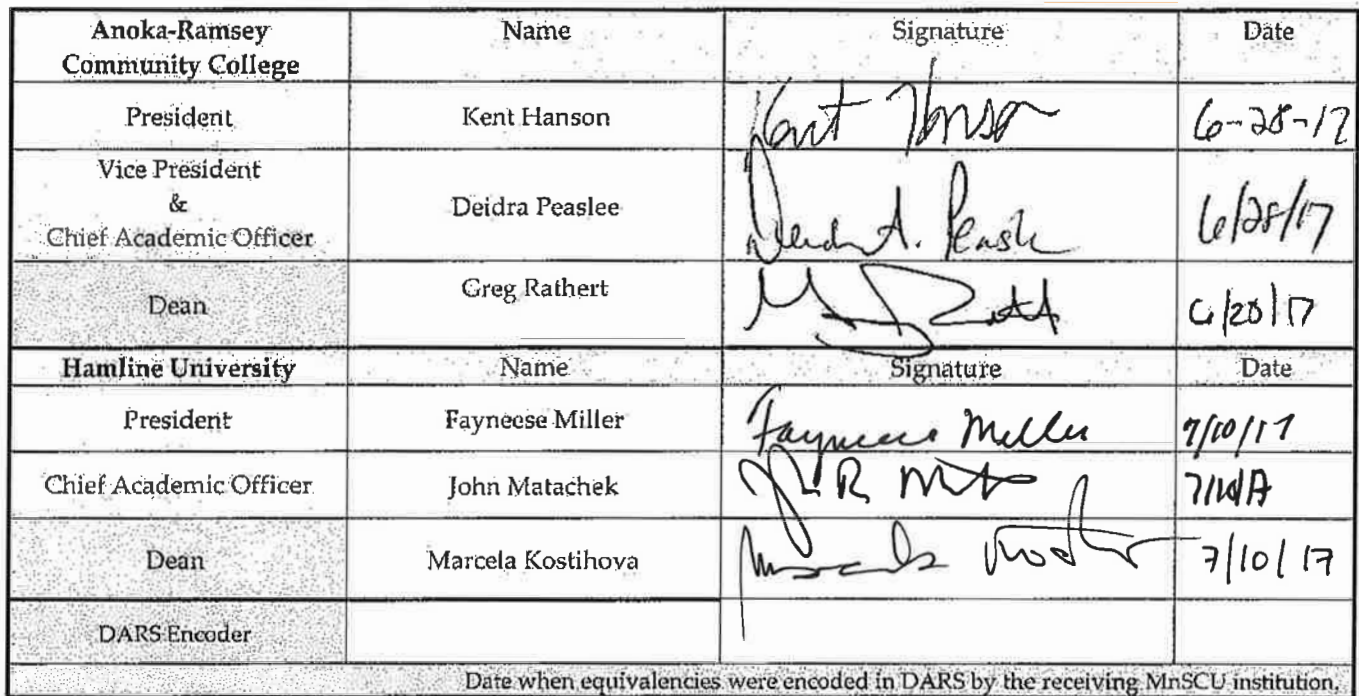 Anoka-Ramsey Community College Name Signature Date
President Kent Hanson Kent Hanson 6-28-17
Vice President & Chief Academic Officer Deidra Peaslee Deidra A. Peaslee 6/28/17
Dean Greg Rathert 6/28/17
Hamline University Name Signature Date
President Fayneese Miller Fayneese Miller 7/10/17
Chief Academic Officer John Matachek 7/10/17
Dean Marcela Kostihova 7/10/17
DARS Encoder
Date when equivalencies were encoded in DARS by the receiving MnSCU institution.